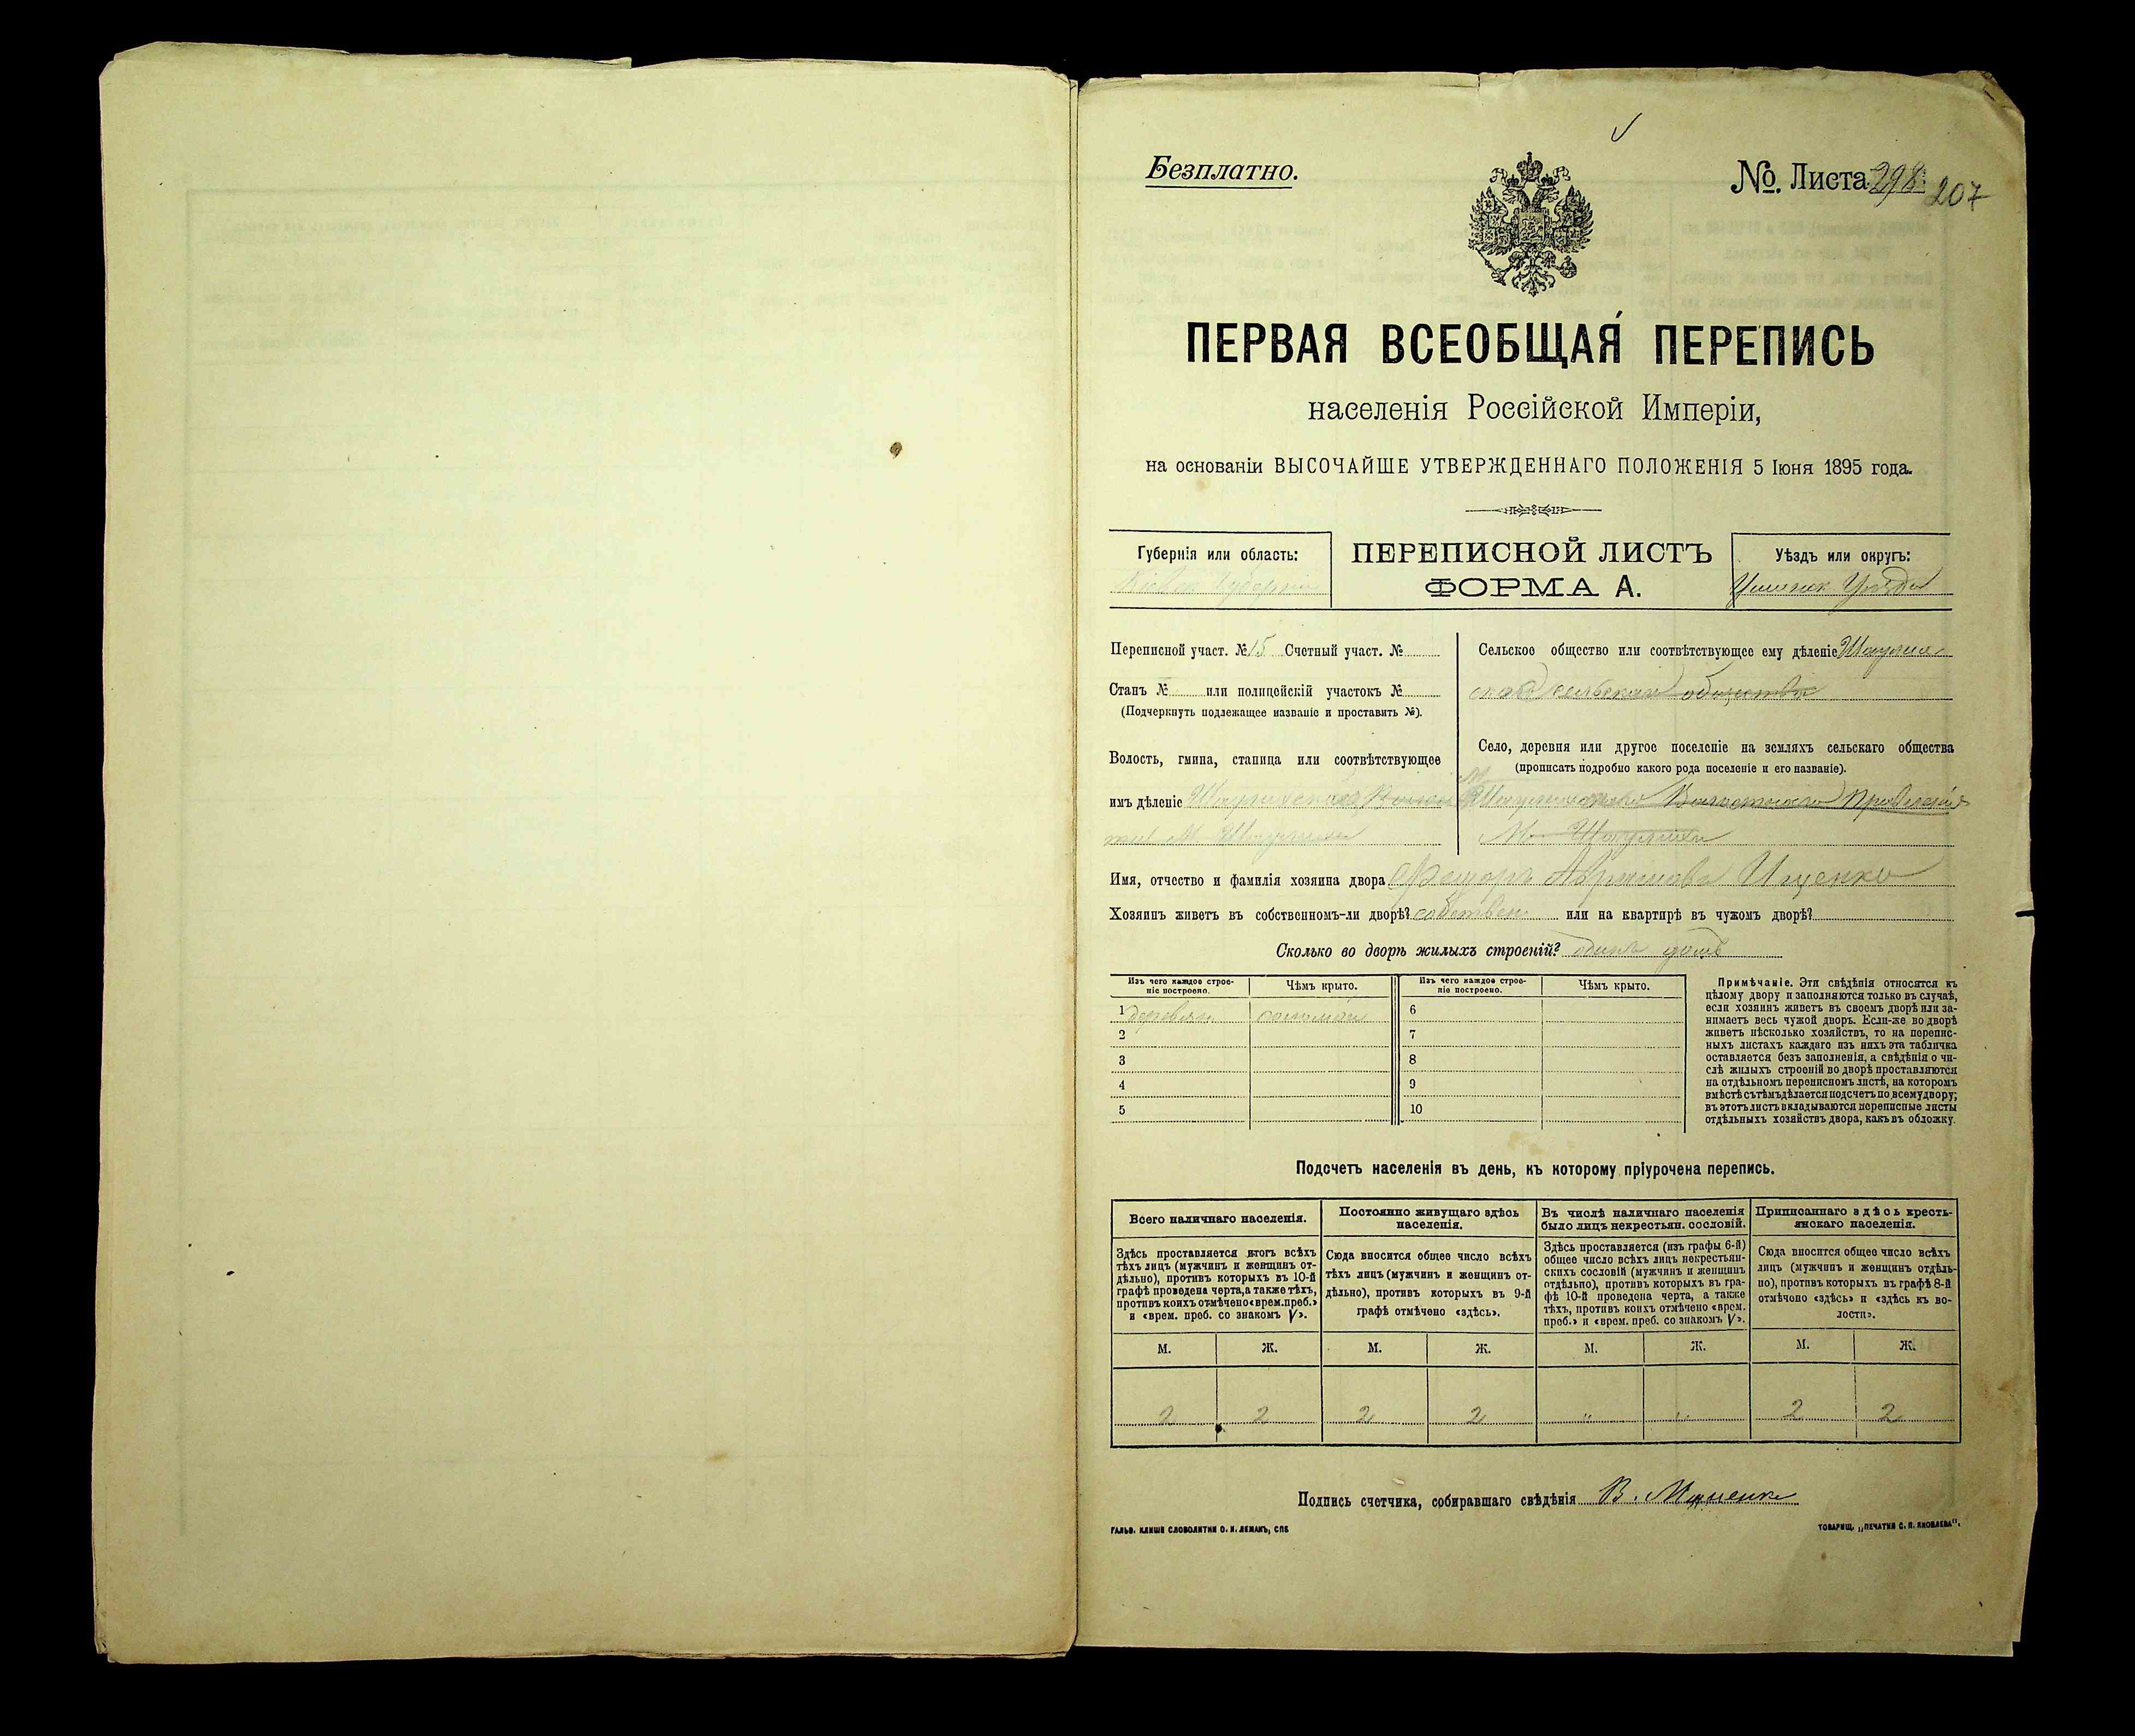 Безплатно.
№. Листа 298
207
ПЕРВАЯ ВСЕОБЩАЯ ПЕРЕПИСЬ
населенія Россійской Имперіи,
на основаніи ВЫСОЧАЙШЕ УТВЕРЖДЕННАГО ПОЛОЖЕНІЯ 5 Іюня 1895 года.
Губернія или область:
ПЕРЕПИСНОЙ ЛИСТЪ
ФОРМА А.
Уѣздъ или округъ:
Переписной участ. № 15 Счетный участ. №
Станъ № или полицейскій участокъ №
(Подчеркнуть подлежащее названіе и проставить №).
Волость, гмина, станица или соотвѣтствующее
имъ дѣленіе
Сельское общество или соотвѣтствующее ему дѣленіе
Село, деревня или другое поселеніе на земляхъ сельскаго общества
(прописать подробно какого рода поселеніе и его названіе).
Имя, отчество и фамилія хозяина двора Ищенко
Хозяинъ живетъ въ собственномъ-ли дворѣ? собствен или на квартирѣ въ чужомъ дворѣ?
Сколько во дворѣ жилыхъ строеній? одинъ домъ
Изъ чего каждое строе-
ніе построено.
Чѣмъ крыто.
Изъ чего каждое строе-
ніе построено.
Чѣмъ крыто.
1 деревян
2
3
4
5
6
7
8
9
10
Примѣчаніе. Эти свѣдѣнія относятся къ
цѣлому двору и заполняются только въ случаѣ,
если хозяинъ живетъ въ своемъ дворѣ или за-
нимаетъ весь чужой дворъ. Если-же во дворѣ
живетъ нѣсколько хозяйствъ, то на перепис-
ныхъ листахъ каждаго изъ нихъ эта табличка
оставляется безъ заполненія, а свѣдѣнія о чи-
слѣ жилыхъ строеній во дворѣ проставляются
на отдѣльномъ переписномъ листѣ, на которомъ
вмѣстѣ съ тѣмъ дѣлается подсчетъ по всему двору;
въ этотъ листъ вкладываются переписные листы
отдѣльныхъ хозяйствъ двора, какъ въ обложку.
Подсчетъ населенія въ день, къ которому пріурочена перепись.
Всего наличнаго населенія.
Здѣсь проставляется итогъ всѣхъ
тѣхъ лицъ (мужчинъ и женщинъ от-
дѣльно), противъ которыхъ въ 10-й
графѣ проведена черта, а также тѣхъ,
противъ коихъ отмѣчено «врем. преб.»
и «врем. преб. со знакомъ V».
Постоянно живущаго здѣсь
населенія.
Сюда вносится общее число всѣхъ
тѣхъ лицъ (мужчинъ и женщинъ от-
дѣльно), противъ которыхъ въ 9-й
графѣ отмѣчено «здѣсь».
Въ числѣ наличнаго населенія
было лицъ некрестьян. сословій.
Здѣсь проставляется (изъ графы 6-й)
общее число всѣхъ лицъ некрестьян-
скихъ сословій (мужчинъ и женщинъ
отдѣльно), противъ которыхъ въ гра-
фѣ 10-й проведена черта, а также
тѣхъ, противъ коихъ отмѣчено «врем.
преб.» и «врем. преб. со знакомъ V».
Приписаннаго здѣсь кресть-
янскаго населенія.
Сюда вносится общее число всѣхъ
лицъ (мужчинъ и женщинъ отдѣль-
но), противъ которыхъ въ графѣ 8-й
отмѣчено «здѣсь» и «здѣсь къ во-
лости».
М. Ж. М. Ж. М. Ж. М. Ж.
2 2 2 2 " " 2 2
Подпись счетчика, собиравшаго свѣдѣнія В.
ГАЛЬВ. КЛИШЕ СЛОВОЛИТНИ О. И. ЛЕМАНЪ, СПБ
ТОВАРИЩ. „ПЕЧАТНЯ С. П. ЯКОВЛЕВА".